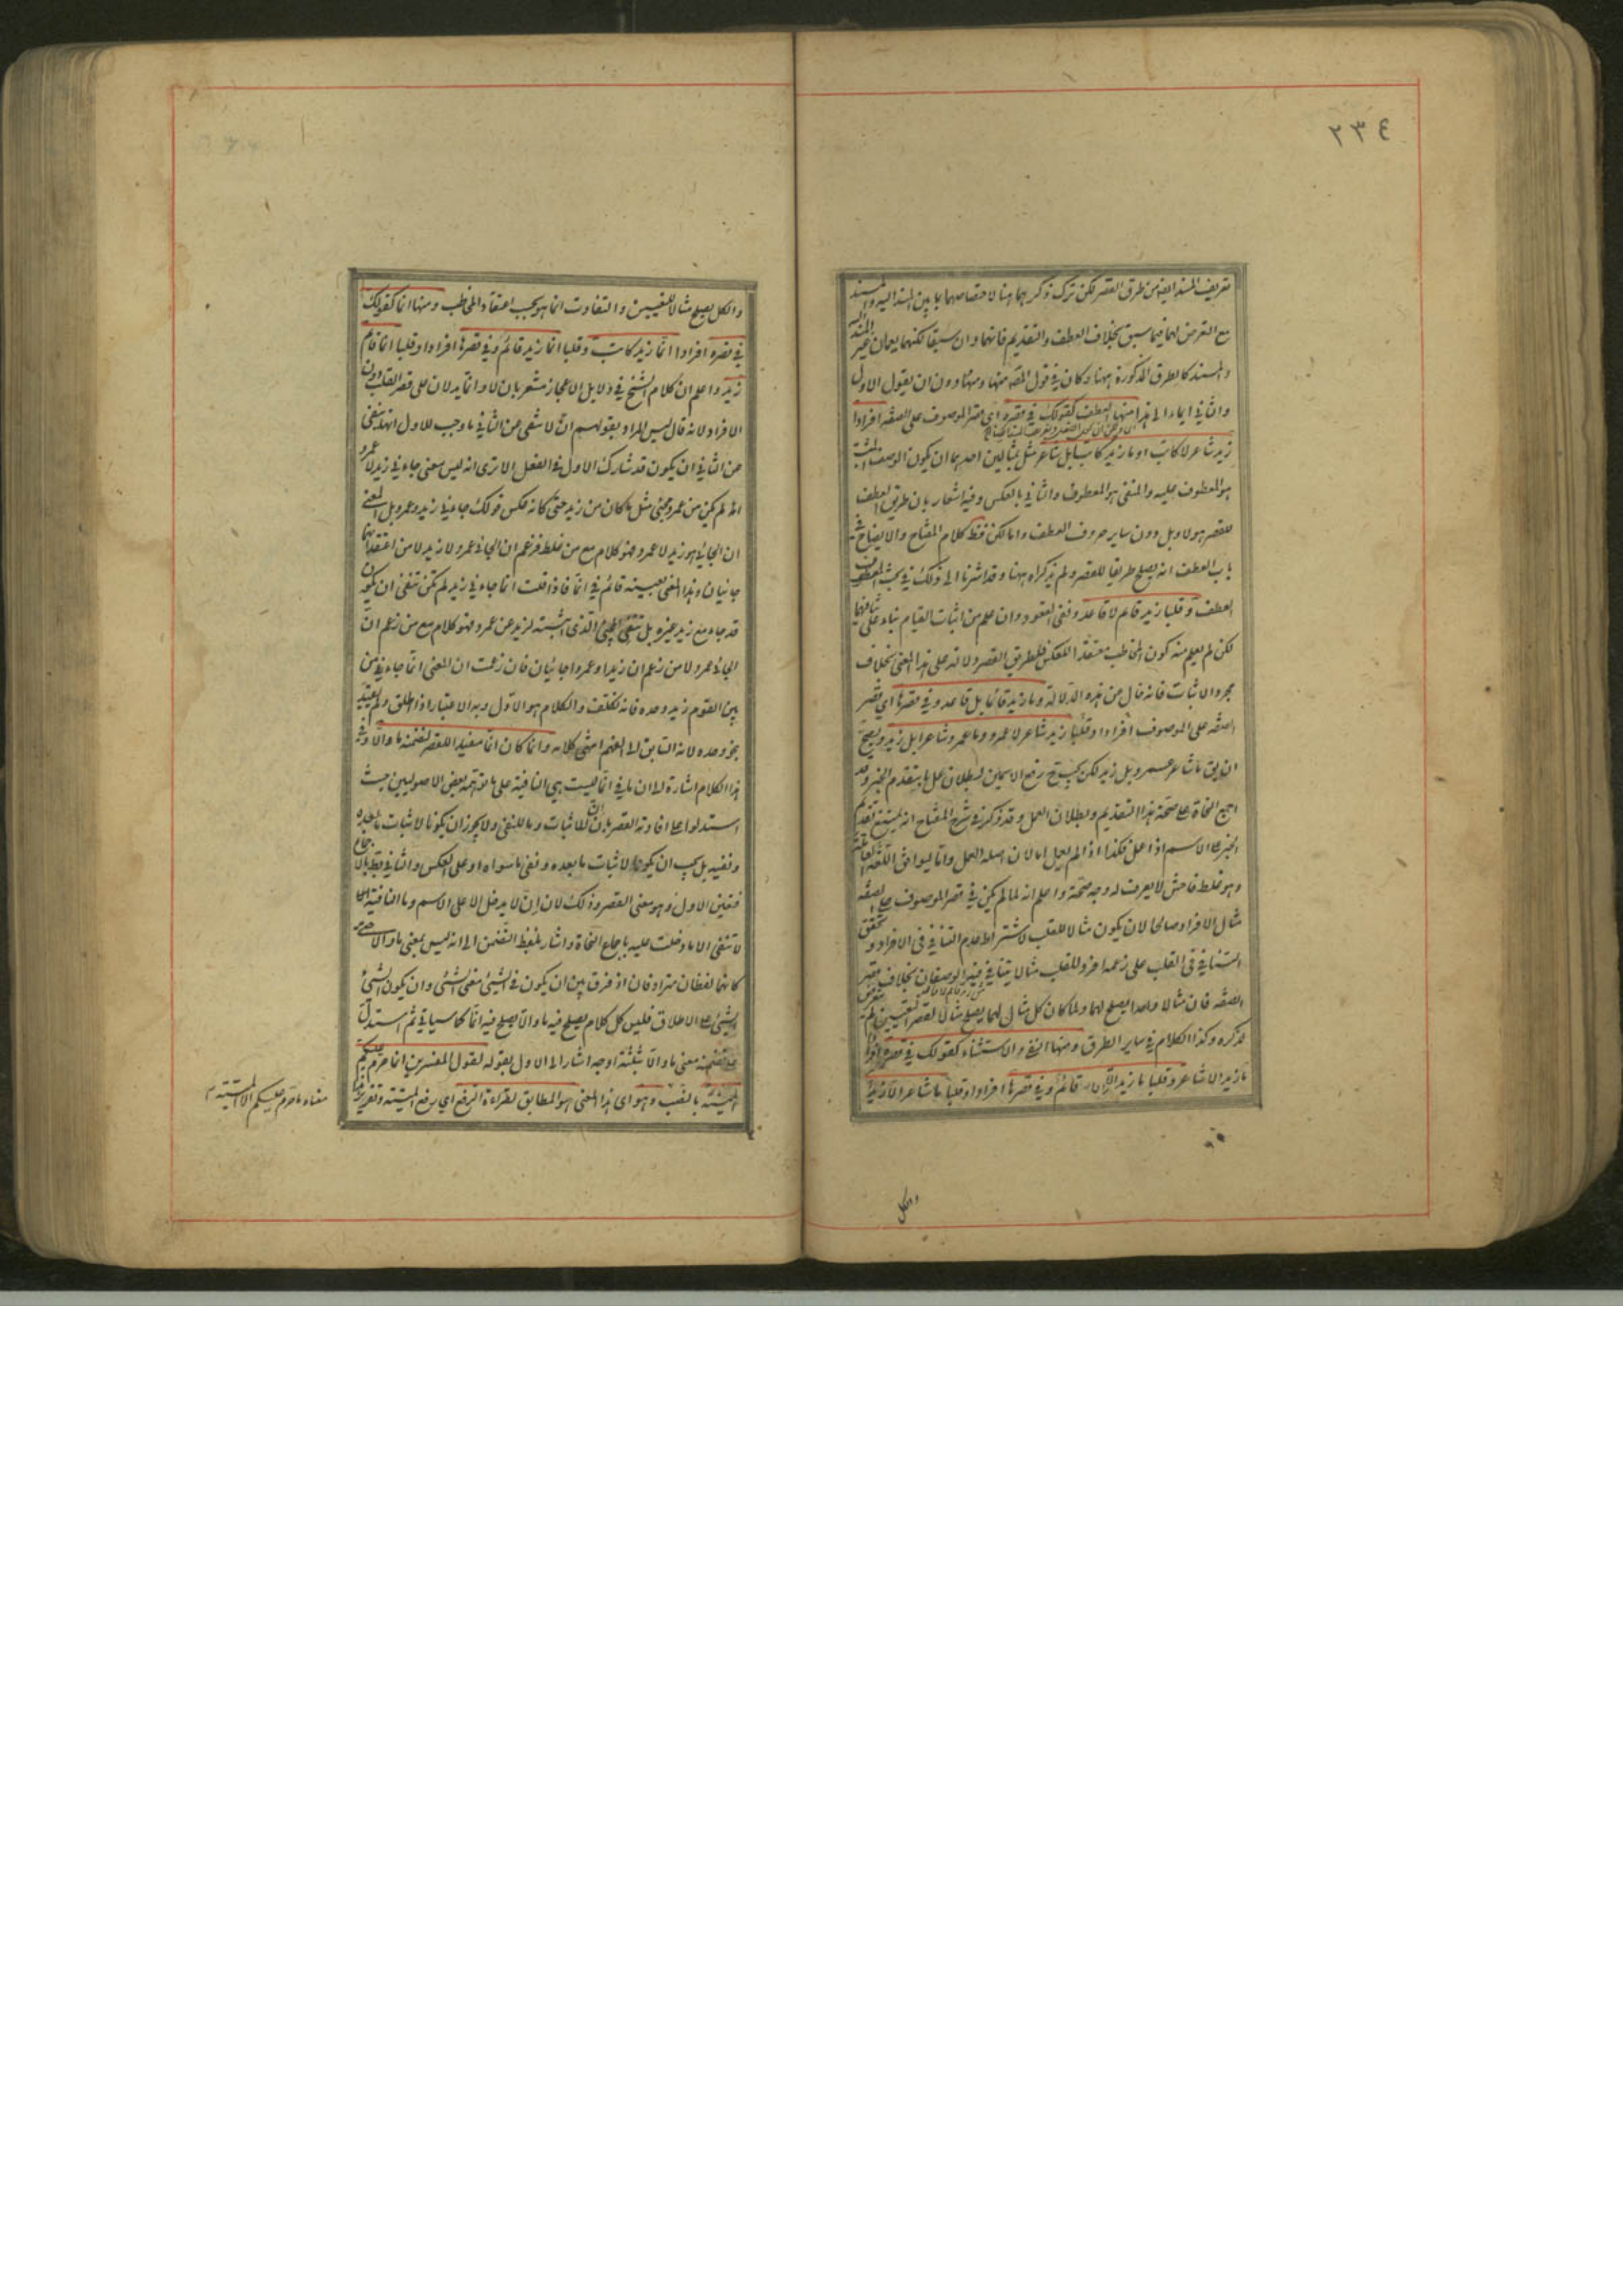 ٢٣٤
تعريف المسند ايضا من طرق القصر لكن ترك ذكرهما هنا لاختصاصهما بما بين المسند اليه والمسند
مع التعرض لهما فيما سبق بخلاف العطف والتقديم فانهما وان سبقا لكنهما يعمان غير المسند اليه
والمسند كالطرق المذكورة ههنا وكان في قول المص منها ومنها دون ان يقول الاول
والثاني ايماء الى هذا منها العطف كقولك في قصره اي قصر الموصوف على الصفة افرادا
زيد شاعر لا كاتب او ما زيد كاتبا بل شاعر مثل بمثالين احدهما ان يكون الوصف المثبت
هو المعطوف عليه والمنفي هو المعطوف والثاني بالعكس وفيه اشعار بان طريق العطف
للقصر هو لا وبل دون ساير حروف العطف واما لكن فظ كلام المفتاح والايضاح في
باب العطف انه يصلح طريقا للقصر ولم يذكراه ههنا وقد اشرنا الى ذلك في بحث
العطف وقلبا زيد قائم لا قاعد ونفي القعود وان علم من اثبات القيام بناء على تنافيهما
لكن لم يعلم منه كون المخاطب معتقدا للعكس فلطريق القصر دلالة على هذا المعنى بخلاف
مجرد الاثبات فانه خال من هذه الدلالة وما زيد قائما بل قاعد وفي قصرها اي قصر
الصفة على الموصوف افرادا وقلبا زيد شاعر لا عمرو وما عمرو شاعرا بل زيد ويصح
ان يق ما شاعر عمرو بل زيد لكن يجب ح رفع الاسمين لبطلان عمل ما بتقدم الخبر وقد
اجمع النحاة على صحة هذا التقديم وبطلان العمل وقد ذكر في شرح المفتاح انه يمتنع تقديم
الخبر على الاسم اذا عمل فكذا اذا لم يعمل اما لان اصله العمل واما ليوافق اللغة العاملة
وهو غلط فاحش لا يعرف له وجه صحة واعلم انه لما لم يكن في قصر الموصوف على الصفة
مثال الافراد صالحا لان يكون مثالا للقلب لاشتراط عدم التنافي في الافراد وتحقق
التنافي في القلب على زعمه افرد للقلب مثالا يتنافي فيه الوصفان بخلاف قصر
الصفة فان مثالا واحدا يصلح لهما ولما كان كل مثال لهما يصلح مثالا لقصر التعيين لم يتعرض
لذكره وكذا الكلام في ساير الطرق ومنها النفي والاستثناء كقولك في قصره افرادا
ما زيد الا شاعر وقلبا ما زيد الا قائم وفي قصرها افرادا وقلبا ما شاعر الا زيد
والكل
والكل يصلح مثالا للتعيين والتفاوت انما هو بحسب اعتقاد المخاطب ومنها انما كقولك
في قصره افرادا انما زيد كاتب وقلبا انما زيد قائم وفي قصرها افرادا وقلبا انما قائم
زيد واعلم ان كلام الشيخ في دلايل الاعجاز مشعر بان لا وانما يدلان على قصر القلب دون
الافراد لانه قال ليس المراد بقولهم ان لا تنفي عن الثاني ما وجب للاول انها تنفي
عن الثاني ان يكون قد شارك الاول في الفعل الا ترى انه ليس معنى جاءني زيد لا عمرو
انه لم يكن من عمرو مجئ مثل ما كان من زيد حتى كانه عكس قولك جاءني زيد وعمرو بل المعنى
ان الجائي هو زيد لا عمرو فهو كلام مع من غلط فزعم ان الجائي عمرو لا زيد لا من اعتقد انهما
جائيان وهذا المعنى بعينه قائم في انما فاذا قلت انما جاءني زيد لم تكن تنفي ان يكون
قد جاء مع زيد غيره بل تنفي المجئ الذي اثبته لزيد عن عمرو فهو كلام مع من زعم ان
الجائي عمرو لا من زعم ان زيدا وعمروا جائيان فان زعمت ان المعنى انما جاءني من
بين القوم زيد وحده فانه تكلف والكلام هو الاول وبه الاعتبار اذا اطلق ولم يقيد
بنحو وحده لانه السابق الى الفهم انتهى كلامه وانما كان انما مفيدا للقصر لتضمنه ما والا وفي
هذا الكلام اشارة الى ان ما في انما ليست هي النافية على ما توهمه بعض الاصوليين حيث
استدلوا على افادته القصر بان ان للاثبات وما للنفي ولا يجوز ان يكونا لاثبات ما بعده
ونفيه بل يجب ان يكونا لاثبات ما بعده ونفي ما سواه او على العكس والثاني بط بالاجماع
فتعين الاول وهو معنى القصر وذلك لان ان لا يدخل الا على الاسم وما النافية
لا تنفي الا ما دخلت عليه باجماع النحاة واشار بلفظ التضمن الى انه ليس بمعنى ما والا حتى
كانهما لفظان مترادفان اذ فرق بين ان يكون في الشئ معنى الشئ وان يكون الشئ
الشئ على الاطلاق فليس كل كلام يصلح فيه ما والا يصلح فيه انما كما سياتي ثم استدل
على تضمنه معنى ما والا بثلثة اوجه اشار الى الاول بقوله لقول المفسرين انما حرم عليكم
الميتة بالنصب وهو اي هذا المعنى هو المطابق لقراءة الرفع اي رفع الميتة وتقرير هذا
معناه ما حرم عليكم الا الميتة